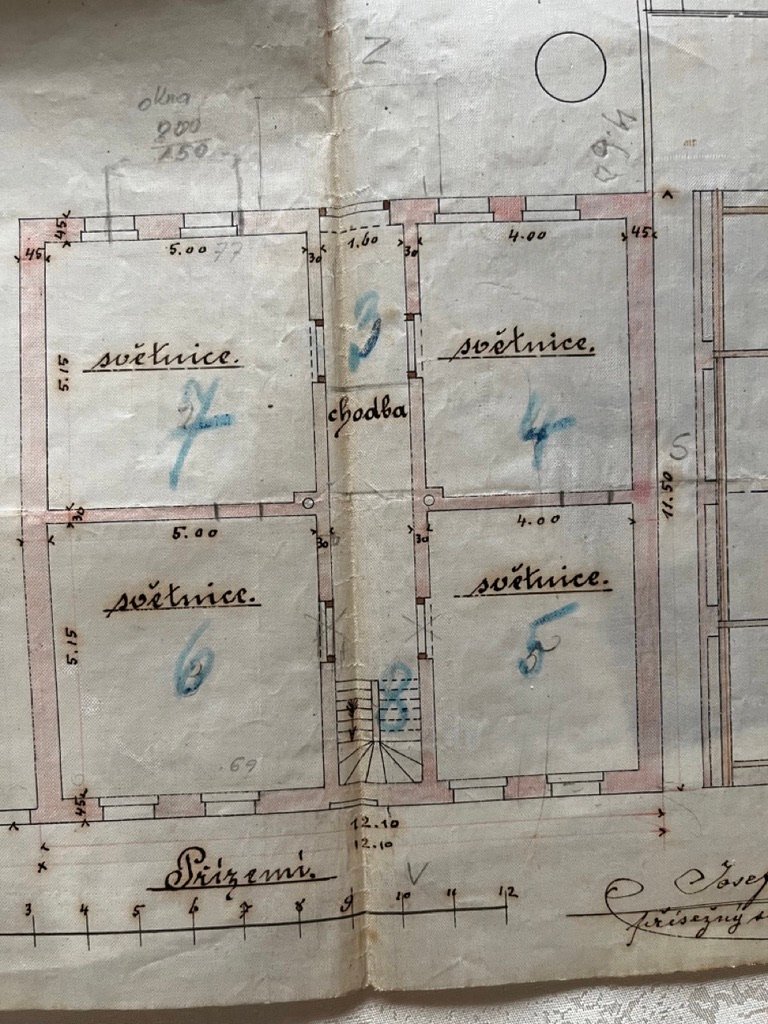 Z
okna
200
150
45
45
5.00
77
30
1.60
30
4.00
45
3
světnice.
světnice.
5.15
7
chodba
4
S
11.50
30
5.00
30
30
4.00
světnice.
světnice.
5.15
6
5
8
.69
45
12.10
12.10
Přízemí.
V
3 4 5 6 7 8 9 10 11 12
Josef
přísežný